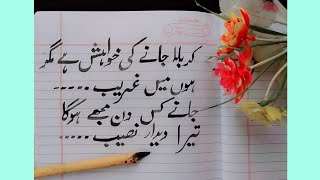 کربلا جانے کی خواہش ہے مگر
ہوں میں غریب ۔۔۔۔۔
جانے کس دن مجھے ہوگا
تیرا دیدار نصیب ۔۔۔۔۔